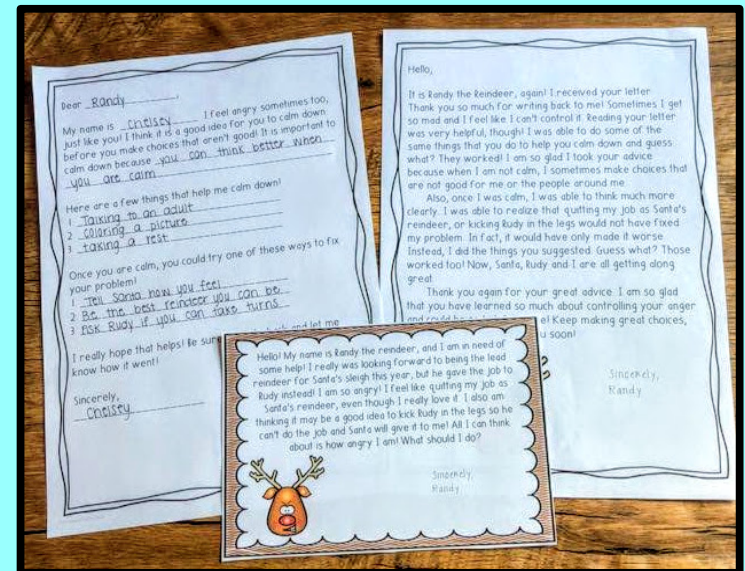 Dear Randy,
My name is Chelsey. I feel angry sometimes too,
just like you! I think it is a good idea for you to calm down
before you make choices that aren't good! It is important to
calm down because you can think better when
you are calm
Here are a few things that help me calm down!
1 Talking to an adult
2 coloring a picture
3 taking a rest
Once you are calm, you could try one of these ways to fix
your problem!
1 Tell Santa how you feel
2 Be the best reindeer you can be
3 Ask Rudy if you can take turns
I really hope that helps! Be sure and let me
know how it went!
Sincerely,
Chelsey
Hello,
It is Randy the Reindeer, again! I received your letter
Thank you so much for writing back to me! Sometimes I get
so mad and I feel like I can't control it. Reading your letter
was very helpful, though! I was able to do some of the
same things that you do to help you calm down and guess
what? They worked! I am so glad I took your advice
because when I am not calm, I sometimes make choices that
are not good for me or the people around me.
Also, once I was calm, I was able to think much more
clearly. I was able to realize that quitting my job as Santa's
reindeer, or kicking Rudy in the legs would not have fixed
my problem. In fact, it would have only made it worse.
Instead, I did the things you suggested. Guess what? Those
worked too! Now, Santa, Rudy and I are all getting along
great.
Thank you again for your great advice. I am so glad
that you have learned so much about controlling your anger
and could e! Keep making great choices,
u soon!
Sincerely,
Randy
Hello! My name is Randy the reindeer, and I am in need of
some help! I really was looking forward to being the lead
reindeer for Santa's sleigh this year, but he gave the job to
Rudy instead! I am so angry! I feel like quitting my job as
Santa's reindeer, even though I really love it. I also am
thinking it may be a good idea to kick Rudy in the legs so he
can't do the job and Santa will give it to me! All I can think
about is how angry I am! What should I do?
Sincerely,
Randy